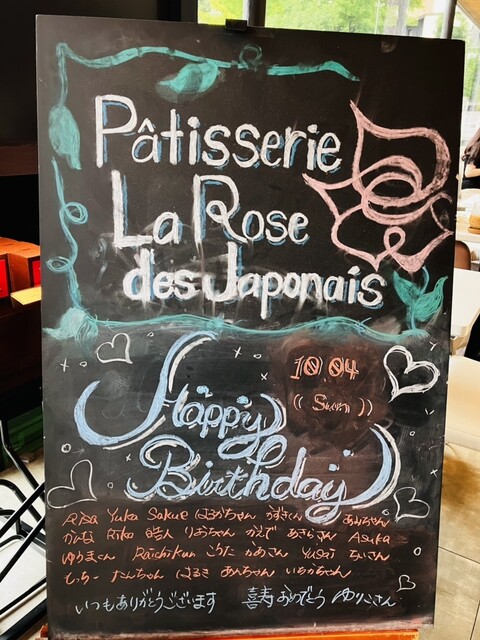 Pâtisserie
La Rose
des Japonais
10.04
(( Sun ))
Happy
Birthday
Risa Yuka Sakue はるかちゃん かずきくん あみちゃん
かなえ Rika 皓人 りおちゃん かえで あきらさん Asuka
ゆかまくん Raichikun こうた かあさん Yusei ちいさん
もっちー たんちゃん はるき あんちゃん いちかちゃん
いつもありがとうございます 喜寿おめでとう ゆりこさん